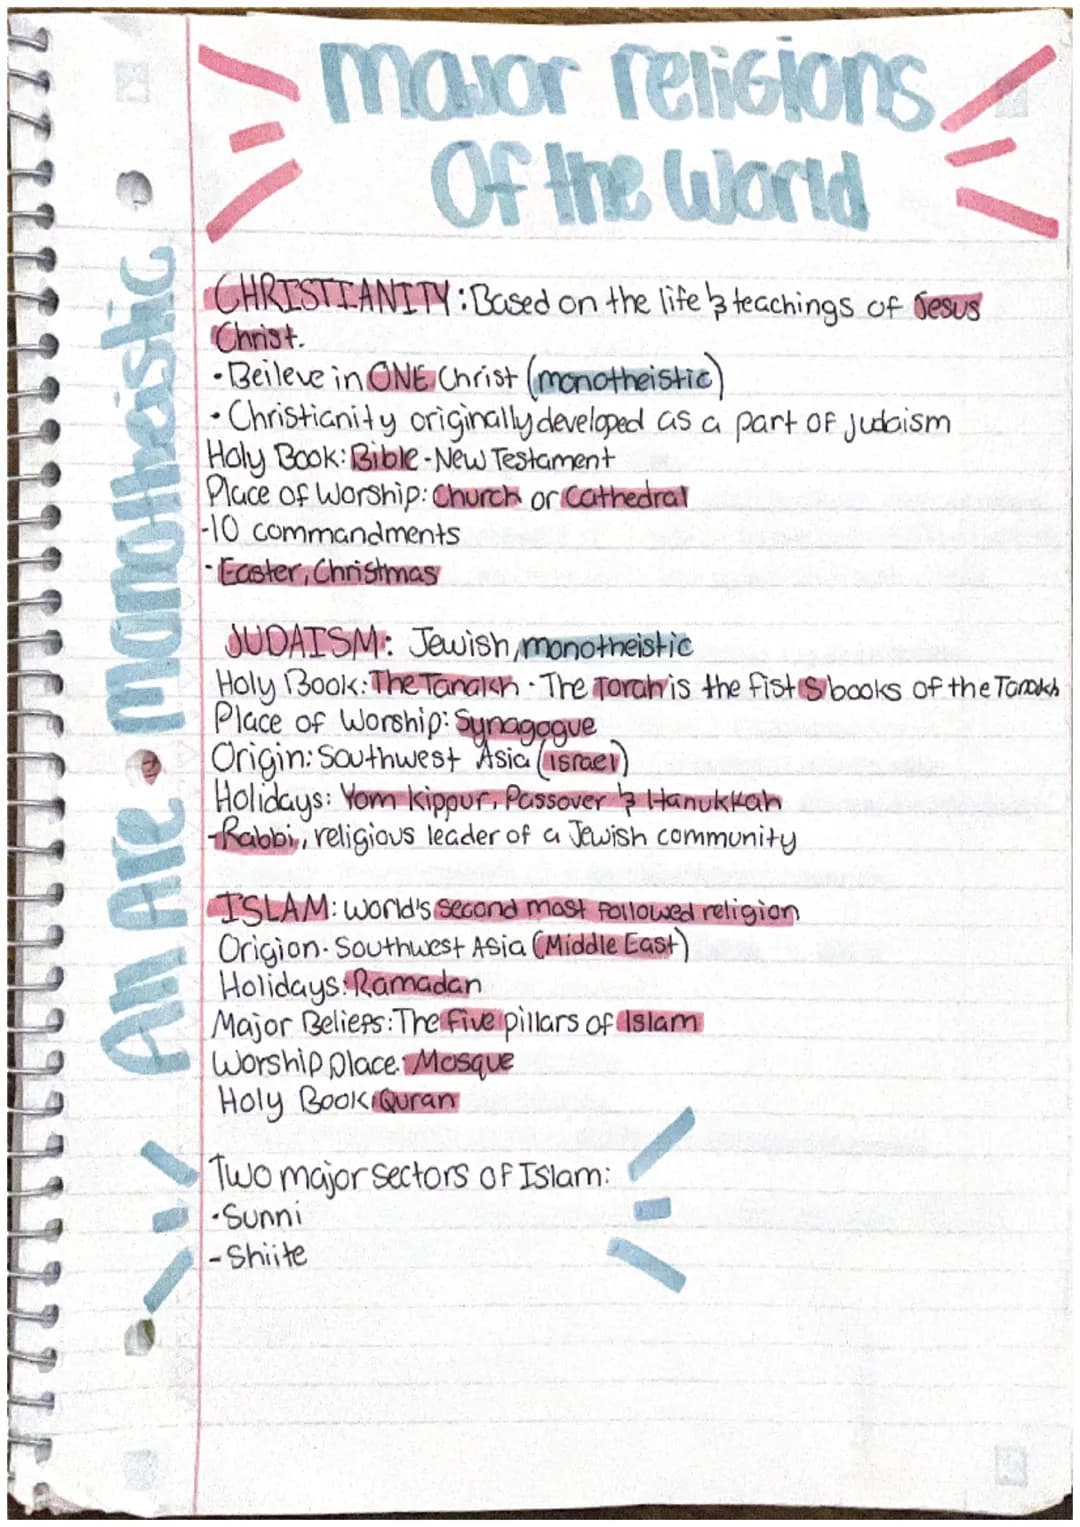 Major religions
Of the World
All Are • Monotheistic
CHRISTIANITY: Based on the life & teachings of Jesus
Christ.
• Beileve in ONE Christ (monotheistic)
• Christianity originally developed as a part of Judaism
Holy Book: Bible - New Testament
Place of Worship: Church or Cathedral
-10 commandments
• Easter, Christmas
JUDAISM: Jewish, monotheistic
Holy Book: The Tanakh • The Torah is the fist 5 books of the Tanakh
Place of Worship: Synagogue
Origin: Southwest Asia (israel)
Holidays: Yom Kippur, Passover & Hanukkah
-Rabbi, religious leader of a Jewish community
ISLAM: World's second most followed religion
Origion- Southwest Asia (Middle East)
Holidays: Ramadan
Major Beliefs: The five pillars of Islam
Worship place: Mosque
Holy Book: Quran
Two major sectors of Islam:
• Sunni
- Shiite